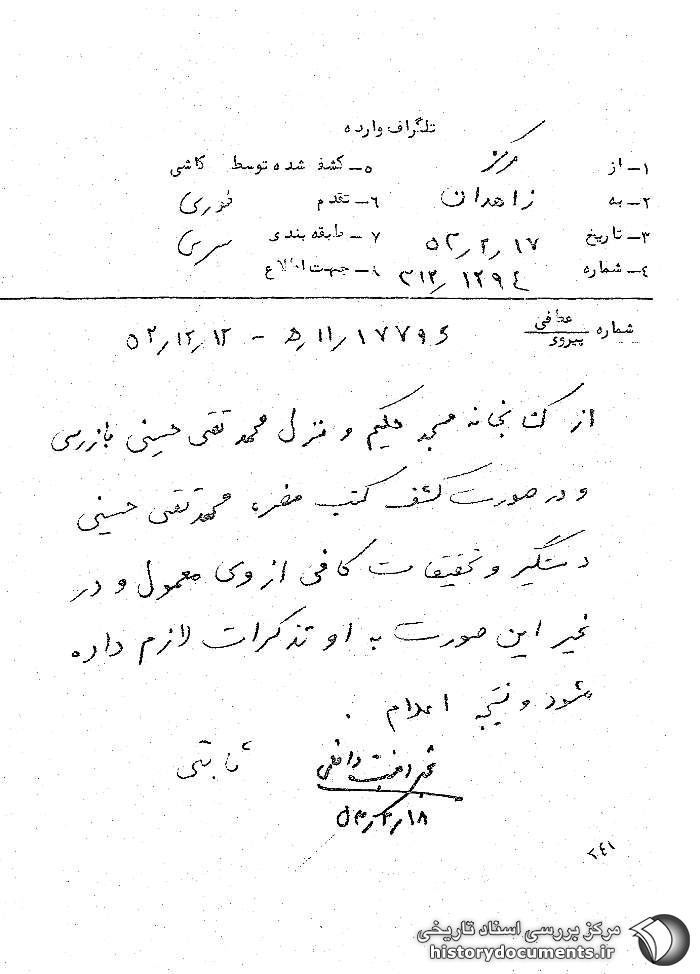 تلگراف وارده
۱ـ از مرکز ۵ـ کشف شده توسط کاشی
۲ـ به زاهدان ۶ـ تقدم فوری
۳ـ تاریخ ۵۳٫۲٫۱۷ ۷ـ طبقه بندی سری
۴ـ شماره ۳۱۲٫۱۲۹۴ ۸ـ جهت اطلاع
شماره عطفی
پیروی ۱۷۷۹۶٫۱۱٫ﻫ - ۵۲٫۱۲٫۱۲
از کتابخانه مسجد حکیم و منزل محمد تقی حسینی بازرسی
و در صورت کشف کتب مضره، محمد تقی حسینی
دستگیر و تحقیقات کافی از وی معمول و در
غیر این صورت به او تذکرات لازم داده
شود و نتیجه اعلام .
ثابتی
۵۳٫۲٫۱۸
۲۴۱
مرکز بررسی اسناد تاریخی
historydocuments.ir